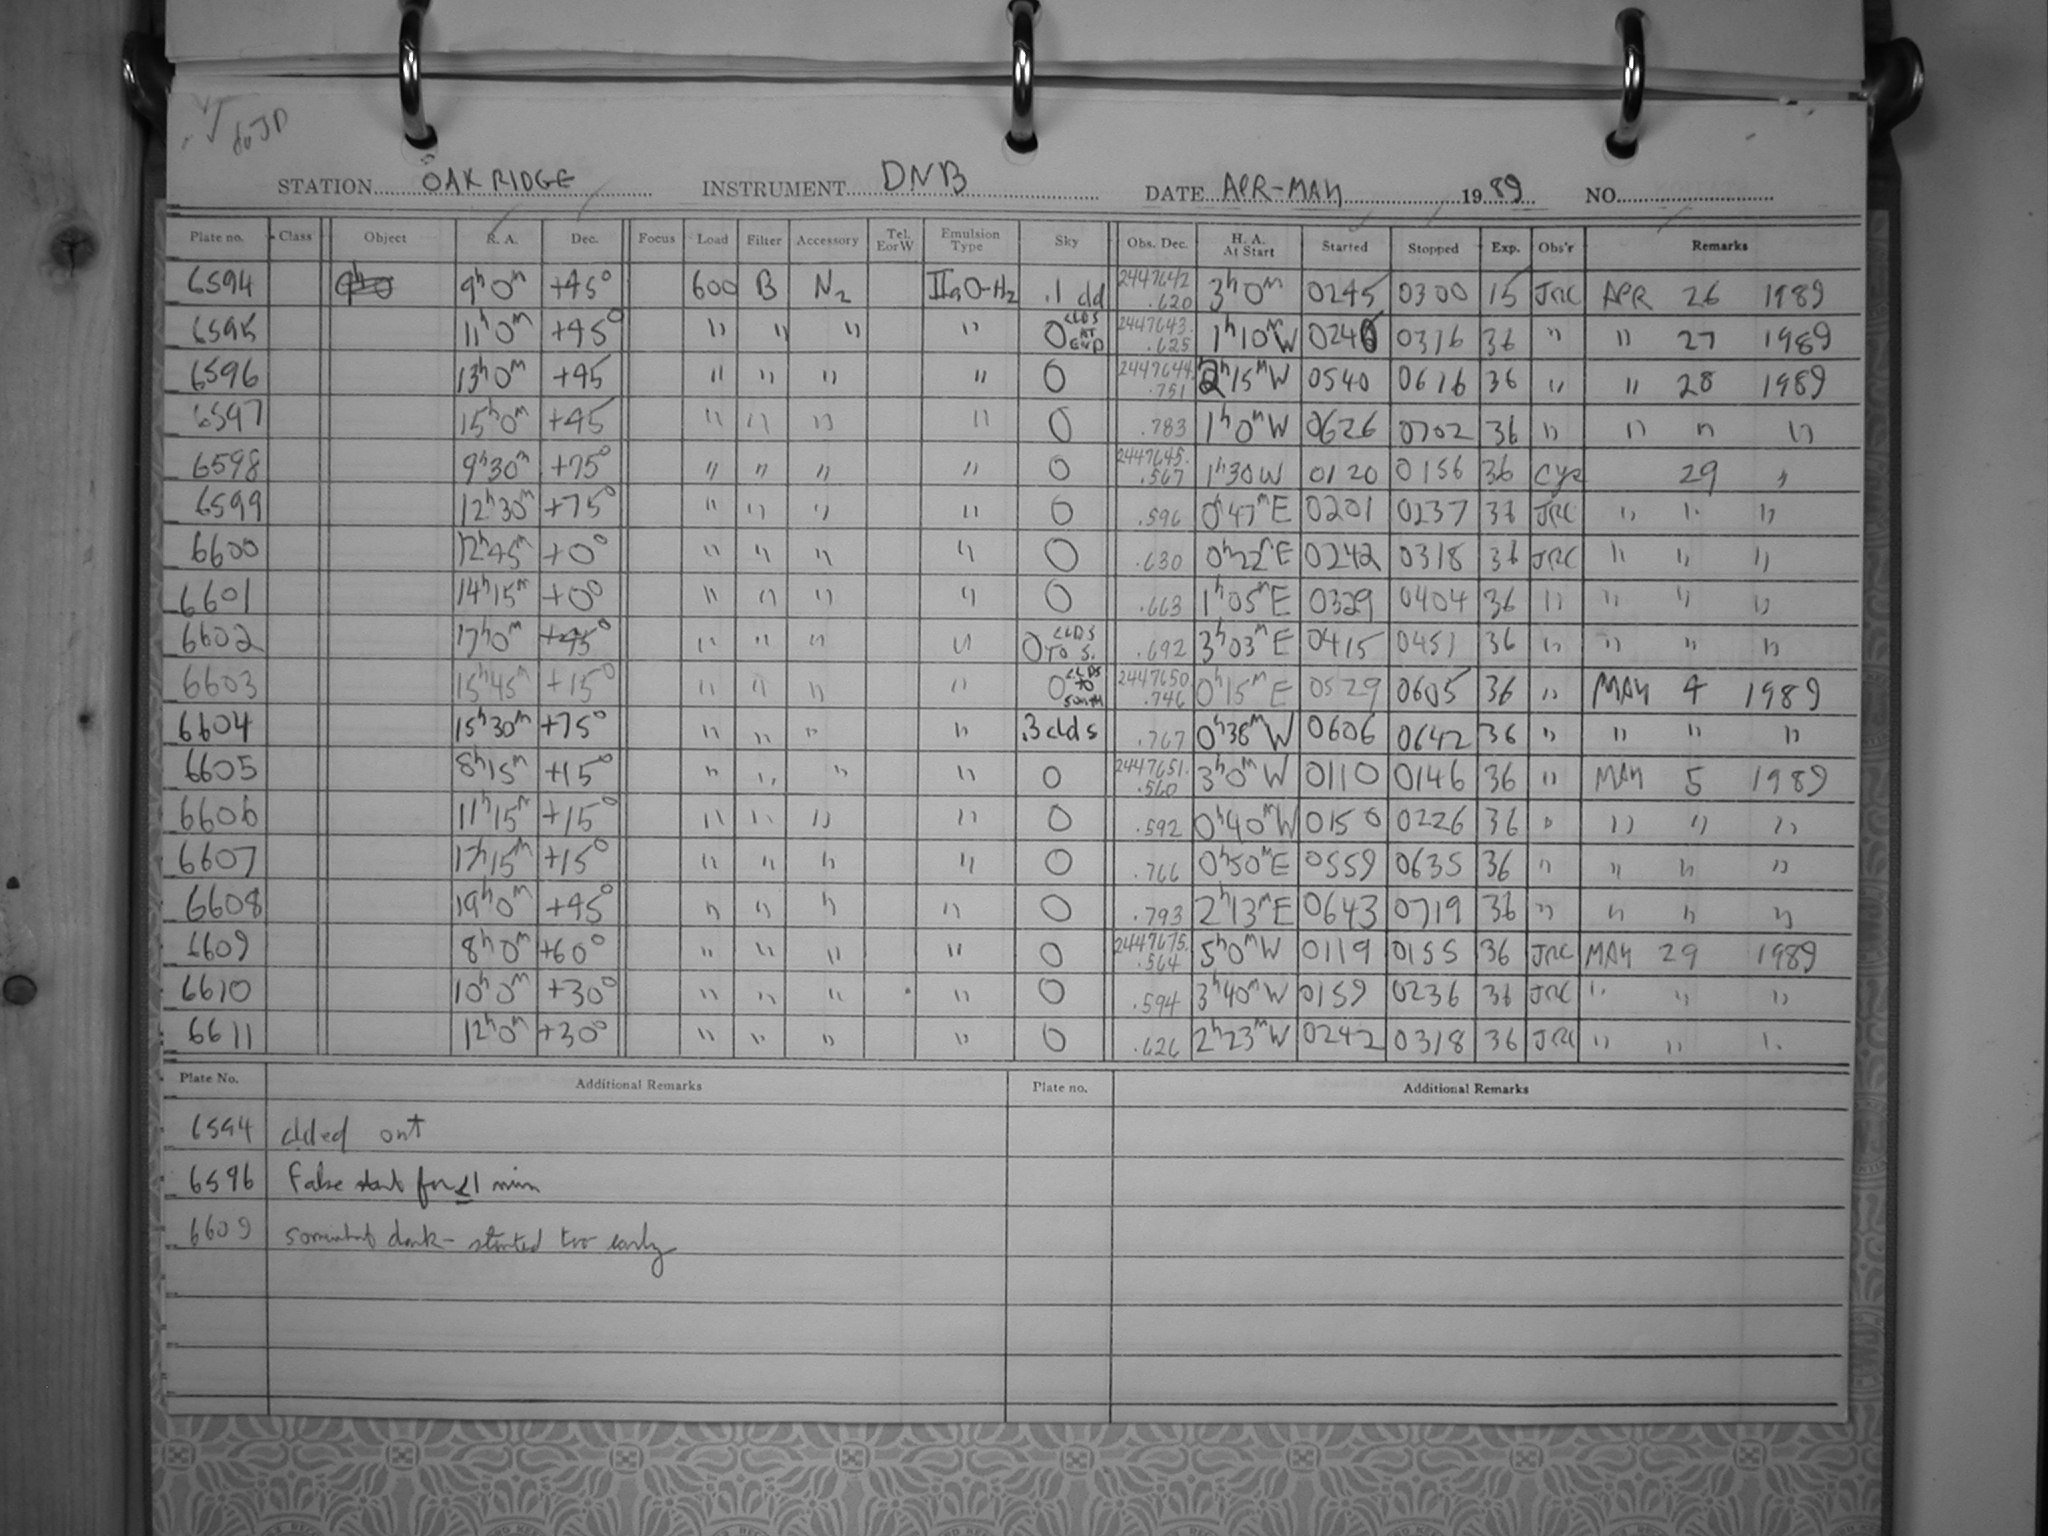 √ do JD
STATION OAK RIDGE INSTRUMENT DNB DATE APR-MAY 1989 NO.
Plate no. Class Object R. A. Dec. Focus Load Filter Accessory Tel. E or W Emulsion Type Sky Obs. Dec. H. A. At Start Started Stopped Exp. Obs'r Remarks
6594 9h0m +45° 600 B N2 IIaO-H2 .1 cld 2447642 .620 3h0m 0245 0300 15 JRC APR 26 1989
6595 11h0m +45° " " " " 0 CLDS AT END 2447643. .625 1h10mW 0240 0316 36 " " 27 1989
6596 13h0m +45 " " " " 0 2447644 .751 2h15mW 0540 0616 36 " " 28 1989
6597 15h0m +45 " " " " 0 .783 1h0mW 0626 0702 36 " " " "
6598 9h30m +75° " " " " 0 2447645. .567 1h30W 0120 0156 36 29 "
6599 12h30m +75° " " " " 0 .596 0h47mE 0201 0237 36 JRC " " "
6600 12h45m +0° " " " " 0 .630 0h22mE 0242 0318 36 JRC " " "
6601 14h15m +0° " " " " 0 .663 1h05mE 0329 0404 36 " " " "
6602 17h0m +45° " " " " 0 CLDS TO S. .692 3h03mE 0415 0451 36 " " " "
6603 15h45m +15° " " " " 0 CLDS to south 2447650 .746 0h15mE 0529 0605 36 " MAY 4 1989
6604 15h30m +75° " " " " .3 clds .767 0h38mW 0606 0642 36 " " " "
6605 8h15m +15° " " " " 0 2447651. .560 3h0mW 0110 0146 36 " MAY 5 1989
6606 11h15m +15° " " " " 0 .592 0h40mW 0150 0226 36 " " " "
6607 17h15m +15° " " " " 0 .766 0h50mE 0559 0635 36 " " " "
6608 19h0m +45° " " " " 0 .793 2h13mE 0643 0719 36 " " " "
6609 8h0m +60° " " " " 0 2447675. .564 5h0mW 0119 0155 36 JRC MAY 29 1989
6610 10h0m +30° " " " " 0 .594 3h40mW 0159 0236 36 JRC " " "
6611 12h0m +30° " " " " 0 .626 2h23mW 0242 0318 36 JRC " " "
Plate No. Additional Remarks Plate no. Additional Remarks
6594 clded out
6596 False start for ≤1 min
6609 somewhat dark - started too early